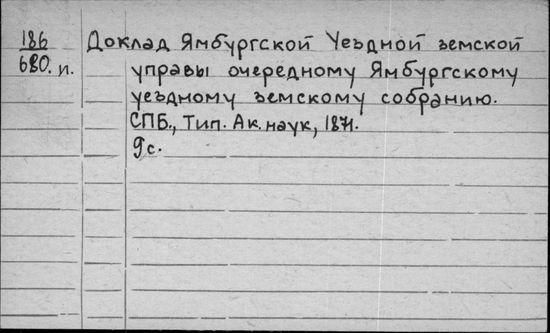 186 Доклад Ямбургской Уездной земской
680.п. управы очередному Ямбургскому
уездному земскому собранию.
СПБ., Тип. Ак. наук, 1871.
9с.